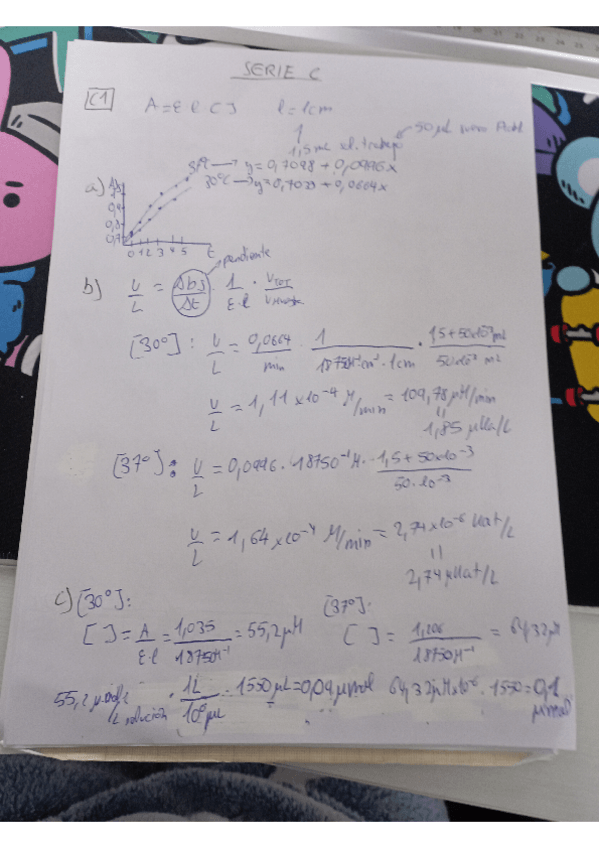 SERIE C
C1 A = ε l C l = 1cm
1,5 mL sl. trabajo 50 μL
37ºC → y = 0,7098 + 0,0996x
a) 30ºC → y = 0,7029 + 0,0664x
0,9
0,8
0,7
0 1 2 3 4 5 t
pendiente
b) U/L = ΔAbs/Δt · 1/ε·l · VTOT/Vmuestra
[30º]: U/L = 0,0664/min · 1/18750M⁻¹·cm⁻¹·1cm · 1,5+50x10⁻³mL/50x10⁻³ mL
U/L = 1,11 x10⁻⁴ M/min = 109,78 μM/min
=
1,85 μKat/L
[37º]: U/L = 0,0996 · 18750⁻¹ M · 1,5 + 50x10⁻³/50·10⁻³
U/L = 1,64 x10⁻⁴ M/min = 2,74 x10⁻⁶ Kat/L
=
2,74 μKat/L
c) [30º]: [37º]:
[ ] = A/ε·l = 1,035/18750M⁻¹ = 55,2 μM [ ] = 1,206/18750M⁻¹ = 64,32 μM
55,2 μmol/L solución · 1L/10⁶ μL · 1550 μL = 0,09 μmol 64,32 μM x10⁻⁶ · 1550 = 0,1 μmol